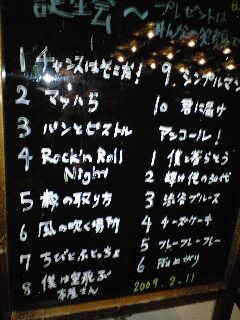 誕生会〜プレゼントは
みんなの笑顔で
1 チャンスはそこだ!
2 マッハ5
3 パンとピストル
4 Rock'n Roll
Night
5 数の取り方
6 風の吹く場所
7 ちびとぶっちょ
8 僕は空飛ぶ
本屋さん
9 シンプルマン
10 君に届け
アンコール!
1 僕と暮らそう
2 30代
3 渋谷ブルース
4 チーズケーキ
5 フレーフレーフレー
6 雨上がり
2009.2.11